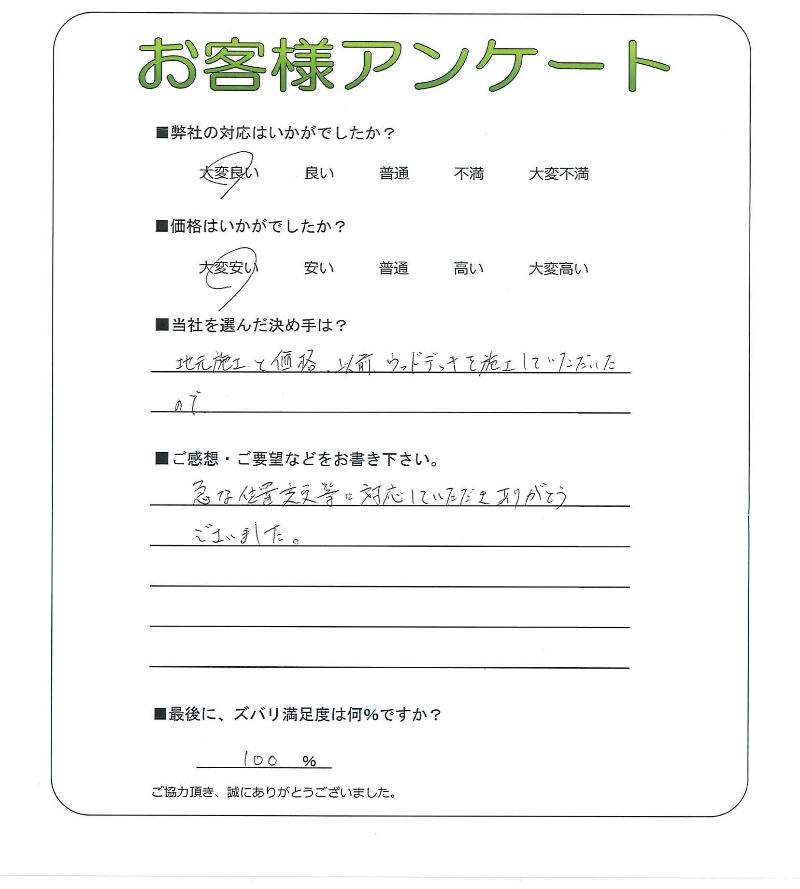 お客様アンケート
■弊社の対応はいかがでしたか？
大変良い 良い 普通 不満 大変不満
■価格はいかがでしたか？
大変安い 安い 普通 高い 大変高い
■当社を選んだ決め手は？
地元施工と価格、以前ウッドデッキを施工していただいた
ので
■ご感想・ご要望などをお書き下さい。
急な位置変更等に対応していただきありがとう
ございました。
■最後に、ズバリ満足度は何％ですか？
100 ％
ご協力頂き、誠にありがとうございました。